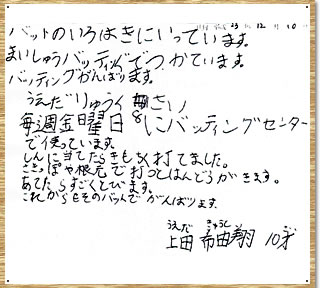 23 12 10
バットのいろはきにいっています。
まいしゅうバッティングでつかっています。
バッティングがんばります。
うえだりゅうく 8さい
毎週金曜日にバッティングセンター
で使っています。
しんに当てたらきもちく打てました。
や根元で打つと
あてたらすごくとびます。
これからもそのバットでがんばります。
うえだ
上田 希由翔 10才